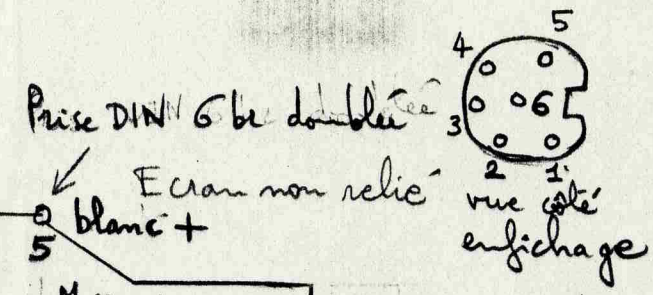 5
4
Prise DIN 6 br doublée
6
3
2 1
Ecran non relié
vue côté
enfichage
blanc +
5